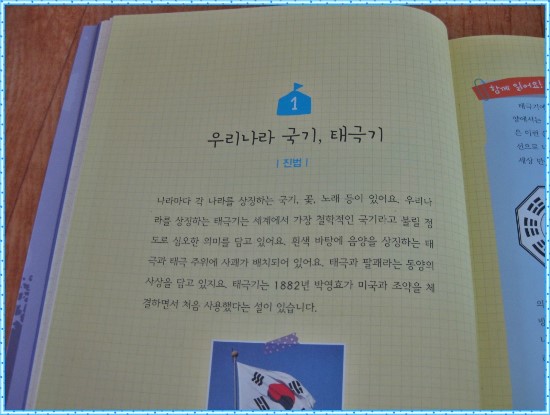 1
우리나라 국기, 태극기
| 진범 |
나라마다 각 나라를 상징하는 국기, 꽃, 노래 등이 있어요. 우리나
라를 상징하는 태극기는 세계에서 가장 철학적인 국기라고 불릴 정
도로 심오한 의미를 담고 있어요. 흰색 바탕에 음양을 상징하는 태
극과 태극 주위에 사괘가 배치되어 있어요. 태극과 팔괘라는 동양의
사상을 담고 있지요. 태극기는 1882년 박영효가 미국과 조약을 체
결하면서 처음 사용했다는 설이 있습니다.
함께 읽어요!
태극기에
앞에서는
은 이런
선으로 나
세상 만
의
발